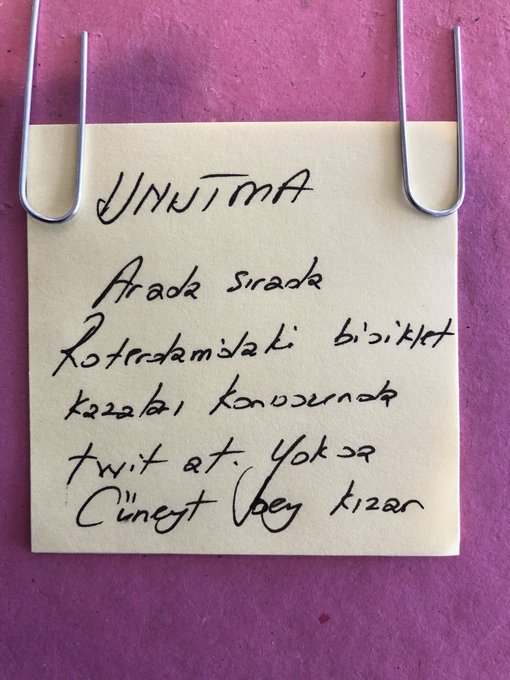 UNUTMA
Arada sırada
Roterdam'daki bisiklet
kazaları konusunda
twit at. Yoksa
Cüneyt bey kızar